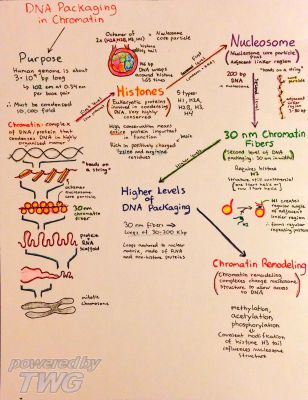 DNA Packaging
in Chromatin
Purpose
Human genome is about
3 · 10⁹ bp long
↳ 102 cm at 0.34 nm
per base pair
↳ Must be condensed
10,000 fold
Chromatin: complex
of DNA / protein that
condenses DNA in highly
organized manor
"beads on a string"
octomer nucleosome
core particle
30nm chromatin
fiber
protein
RNA
scaffold
mitotic chromosome
Octamer of
Nucleosome
core particle
histone
tail
146 bp
DNA wraps
around histone
1.65 times
First
level
Histones
Eukaryotic proteins
involved in condensing
DNA. Very highly
conserved
5 types:
H1, H2A,
H2B, H3,
H4
High conservation means
entire protein important
in function
Rich in positively charged
lysine and arginine
residues
basic
Nucleosome
Nucleosome core particle
+
Adjacent linker region
200 bp
DNA
"beads on a string"
adjacent
linker
region
30 nm Chromatin
Fibers
Second level of DNA
packaging: 30 nm in width
Requires histone
H1
Structure still controversial
H1
H1 creates
regular angles
of adjacent
linker region
to form
regular repeating
pattern
Higher Levels of
DNA Packaging
30 nm fibers →
Loops of 30-300 Kbp
Loops anchored to nuclear
matrix, made of RNA
and non-histone proteins
Chromatin Remodeling
Chromatin remodeling
complexes change nucleosome
structure to allow access
to DNA
methylation,
acetylation,
phosphorylation
Covalent modification
of histone H3 tail
influences nucleosome
structure
powered by
TWG